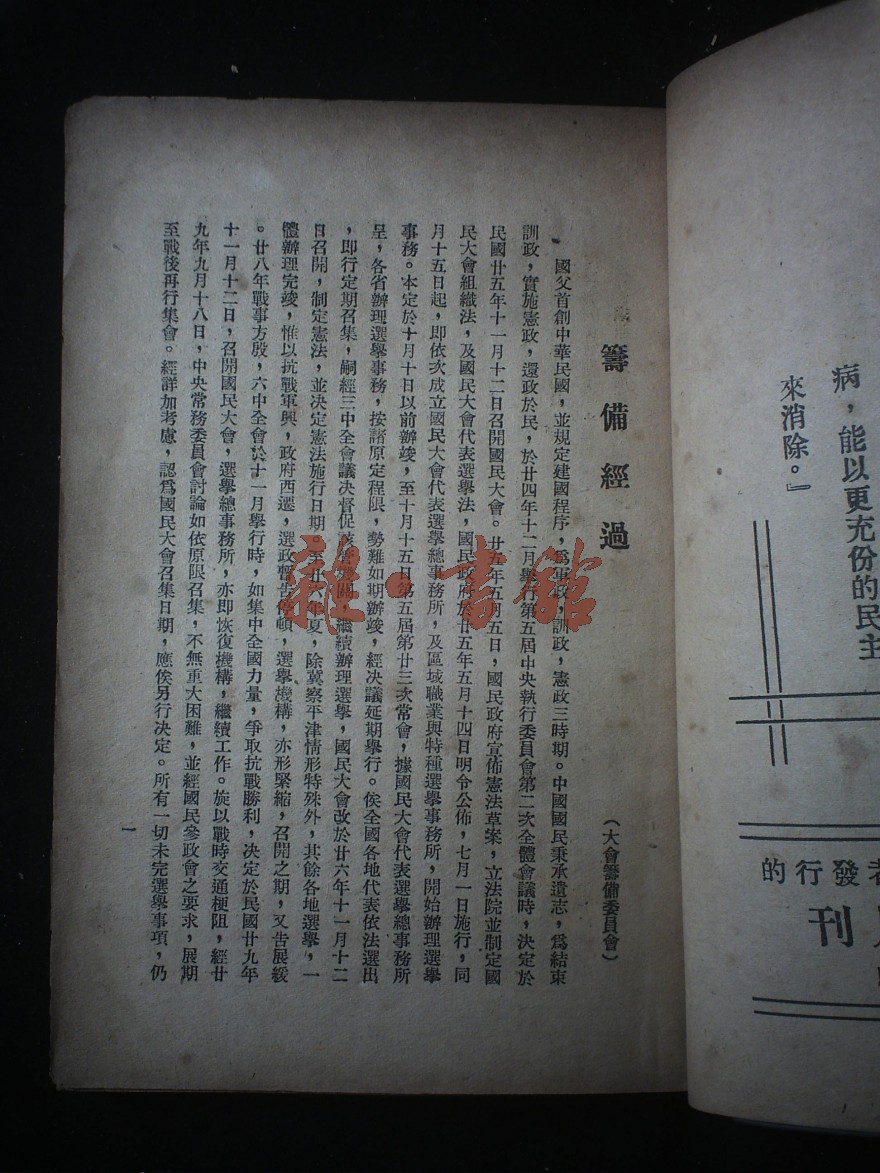 籌備經過
（大會籌備委員會）
國父首創中華民國，並規定建國程序，為軍政，訓政，憲政三時期。中國國民秉承遺志，為結束
訓政，實施憲政，還政於民，於廿四年十二月舉行第五屆中央執行委員會第二次全體會議時，決定於
民國廿五年十一月十二日召開國民大會。廿五年五月五日，國民政府宣佈憲法草案，立法院並制定國
民大會組織法，及國民大會代表選舉法，國民政府於廿五年五月十四日明令公佈，七月一日施行，同
月十五日起，即依次成立國民大會代表選舉總事務所，及區域職業與特種選舉事務所，開始辦理選舉
事務。本定於十月十日以前辦竣，至十月十五日第五屆第廿三次常會，據國民大會代表選舉總事務所
呈，各省辦理選舉事務，按諸原定程限，勢難如期辦竣，經決議延期舉行。俟全國各地代表依法選出
，即行定期召集，嗣經三中全會議決督促該管機關，繼續辦理選舉，國民大會改於廿六年十一月十二
日召開，制定憲法，並決定憲法施行日期。至廿六年夏，除冀察平津情形特殊外，其餘各地選舉，一
體辦理完竣，惟以抗戰軍興，政府西遷，選政暫告停頓，選舉機構，亦形緊縮，召開之期，又告展緩
。廿八年戰事方殷，六中全會於十一月舉行時，如集中全國力量，爭取抗戰勝利，決定於民國廿九年
十一月十二日，召開國民大會，選舉總事務所，亦即恢復機構，繼續工作。旋以戰時交通梗阻，經廿
九年九月十八日，中央常務委員會討論如依原限召集，不無重大困難，並經國民參政會之要求，展期
至戰後再行集會。經詳加考慮，認為國民大會召集日期，應俟另行決定。所有一切未完選舉事項，仍
一
雜·書館
病，能以更充份的民主
來消除。』
者發行的
刊